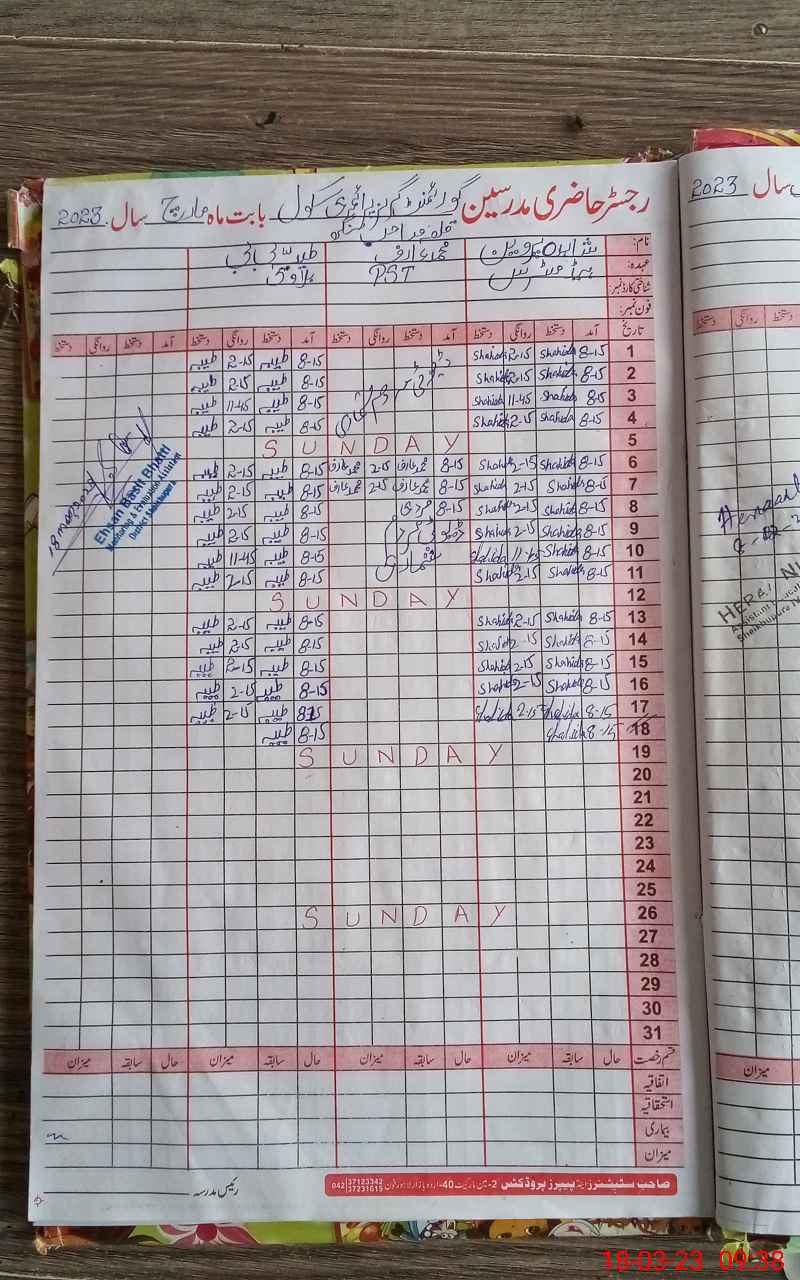 رجسٹر حاضری مدرسین گورنمنٹ گرلز پرائمری سکول بابت ماہ مارچ سال 2023
نام:
عہدہ: PST
شناختی کارڈ نمبر:
فون نمبر:
تاریخ آمد دستخط روانگی دستخط آمد دستخط روانگی دستخط آمد دستخط روانگی دستخط آمد دستخط روانگی دستخط
1 8-15 Shahida 2-15 Shahida 8-15 طیبہ 2-15 طیبہ
2 8-15 Shahida 2-15 Shahida 8-15 طیبہ 2-15 طیبہ
3 8-15 Shahida 11-45 Shahida 8-15 طیبہ 11-45 طیبہ
4 8-15 Shahida 2-15 Shahida 8-15 طیبہ 2-15 طیبہ
5 SUNDAY
6 8-15 Shahida 2-15 Shahida 8-15 محمد عارف 2-15 محمد عارف 8-15 طیبہ 2-15 طیبہ
7 8-15 Shahida 2-15 Shahida 8-15 محمد عارف 2-15 محمد عارف 8-15 طیبہ 2-15 طیبہ
8 8-15 Shahida 2-15 Shahida 8-15 8-15 طیبہ 2-15 طیبہ
9 8-15 Shahida 2-15 Shahida 8-15 طیبہ 2-15 طیبہ
10 8-15 Shahida 11-45 Shahida 8-15 طیبہ 11-45 طیبہ
11 8-15 Shahida 2-15 Shahida 8-15 طیبہ 2-15 طیبہ
12 SUNDAY
13 8-15 Shahida 2-15 Shahida 8-15 طیبہ 2-15 طیبہ
14 8-15 Shahida 2-15 Shahida 8-15 طیبہ 2-15 طیبہ
15 8-15 Shahida 2-15 Shahida 8-15 طیبہ 2-15 طیبہ
16 8-15 Shahida 2-15 Shahida 8-15 طیبہ 2-15 طیبہ
17 8-15 Shahida 2-15 Shahida 8-15 طیبہ 2-15 طیبہ
18 8-15 Shahida 8-15 طیبہ
19 SUNDAY
20
21
22
23
24
25
26 SUNDAY
27
28
29
30
31
قسم رخصت حال سابقہ میزان حال سابقہ میزان حال سابقہ میزان حال سابقہ میزان
اتفاقیہ
استحقاقیہ
بیماری
میزان
صاحب سٹیشنرز اینڈ پیپرز پروڈکٹس 2-مین مارکیٹ 40-اردو بازار لاہور فون 042 37123342 37231615
رئیس مدرسہ
Ehsan Basit Bhatti
Monitoring & Evaluation Assistant
سال 2023
دستخط روانگی دستخط
میزان
18-03-23 09:38